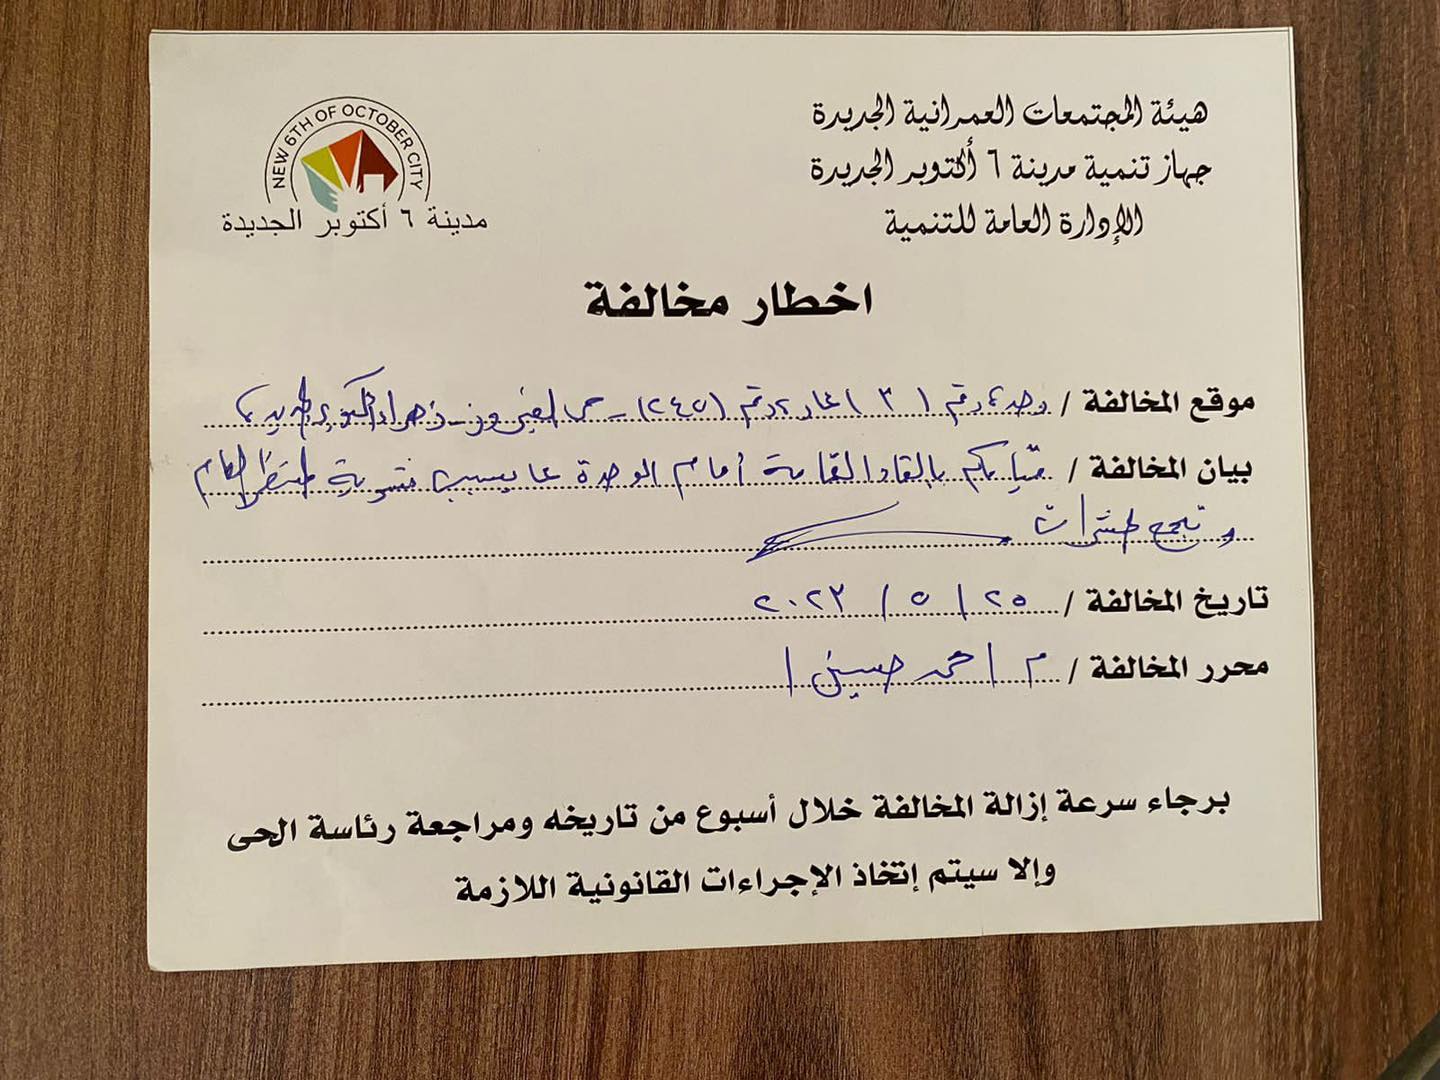 هيئة المجتمعات العمرانية الجديدة
جهاز تنمية مدينة ٦ أكتوبر الجديدة
الإدارة العامة للتنمية
NEW 6TH OF OCTOBER CITY
مدينة ٦ أكتوبر الجديدة
اخطار مخالفة
موقع المخالفة / وحدة رقم (٣) عمارة رقم (٢٤٥) - حى الفيروز - زهراء اكتوبر الجديدة
بيان المخالفة / قيامكم بالقاء القمامة أمام الوحدة مما يسبب تشويه المنظر العام
و تجمع الحشرات
تاريخ المخالفة / ٢٥ / ٥ / ٢٠٢٣
محرر المخالفة / م / احمد حسين /
برجاء سرعة إزالة المخالفة خلال أسبوع من تاريخه ومراجعة رئاسة الحى
وإلا سيتم إتخاذ الإجراءات القانونية اللازمة